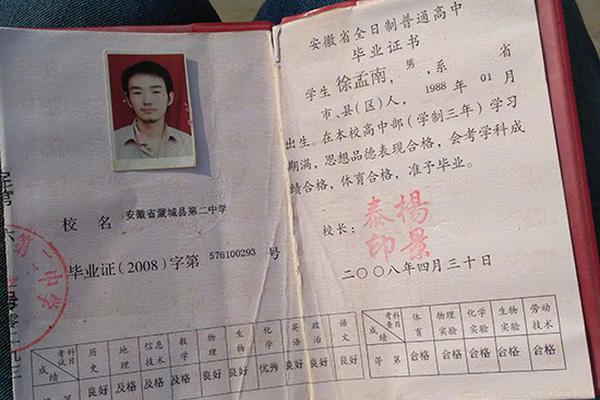 校名 安徽省蒙城县第二中学
毕业证(2008)字第 576100293 号
第二中学
考试科目 历史 地理 信息技术 数学 物理 生物 化学 英语 政治 语文
成绩 良好 及格 及格 及格 良好 良好 优秀 良好 良好 良好
安徽省全日制普通高中
毕业证书
学生 徐孟南，男，系 省
市、县(区)人，1988年01月
出生。在本校高中部(学制三年)学习
期满，思想品德表现合格，会考学科成
绩合格，体育合格，准予毕业。
校长：
杨景泰印
二〇〇八年四月三十日
考查科目 体育 物理实验 化学实验 生物实验 劳动技术
等第 合格 合格 合格 合格 合格